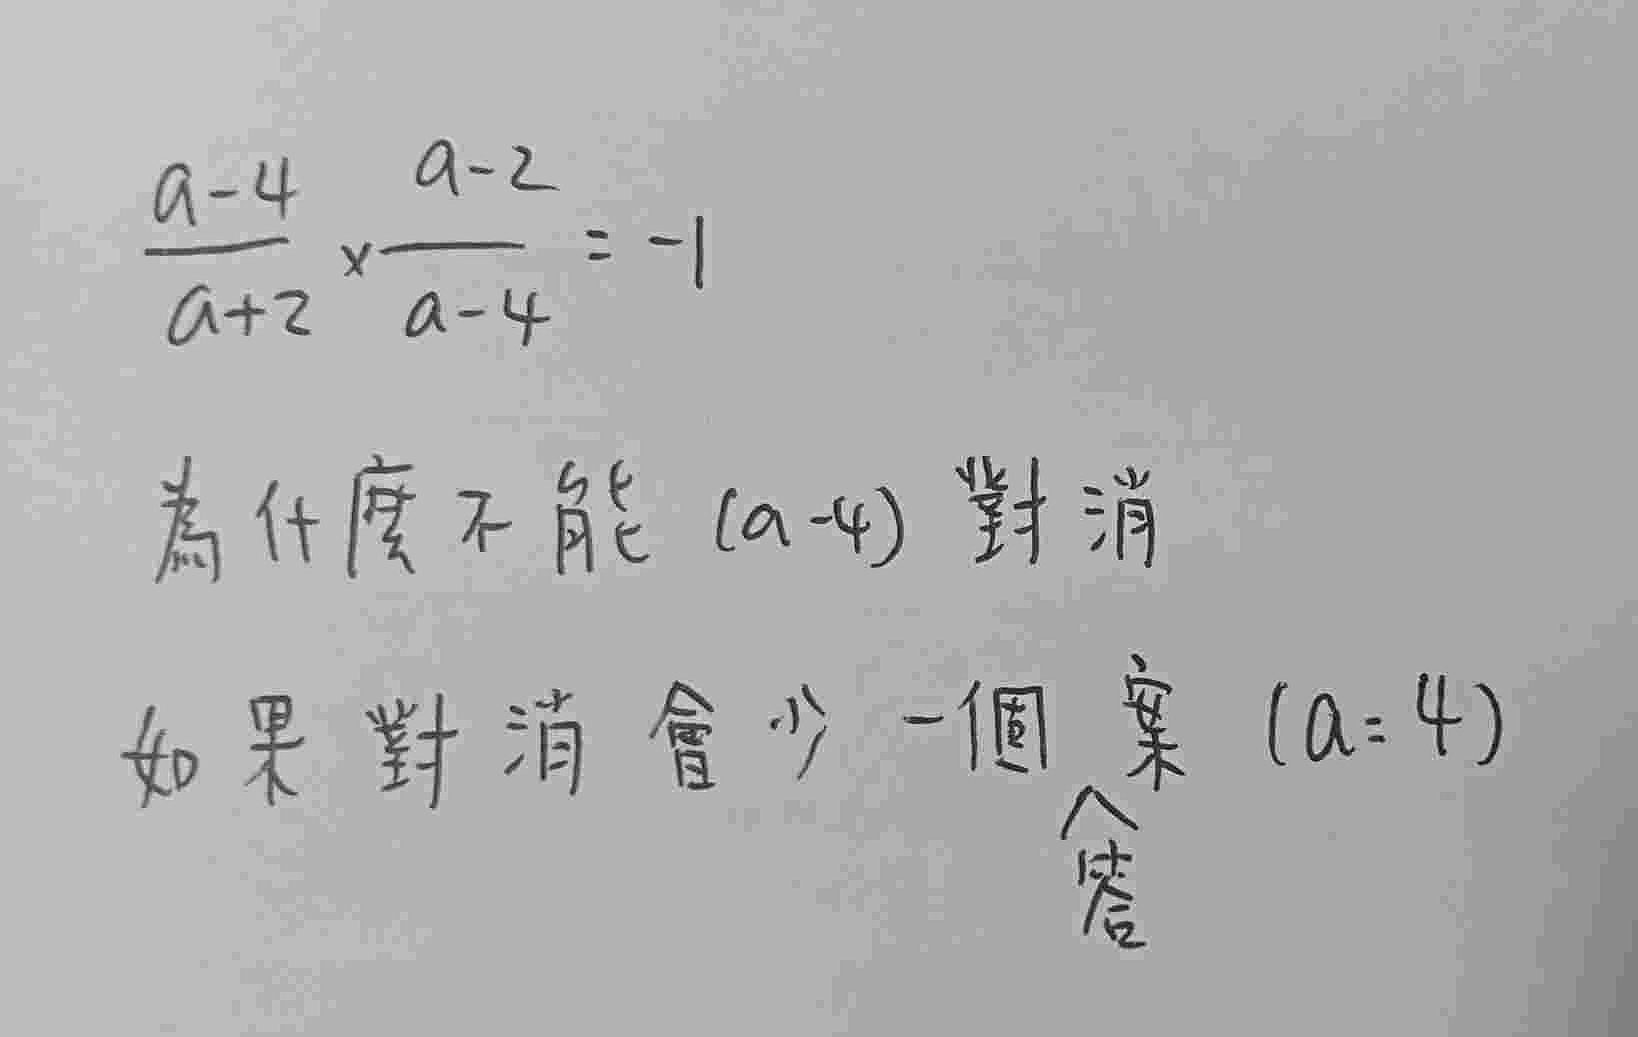 a-4/a+2 × a-2/a-4 = -1
為什麼不能 (a-4) 對消
如果對消會少一個答案 (a=4)